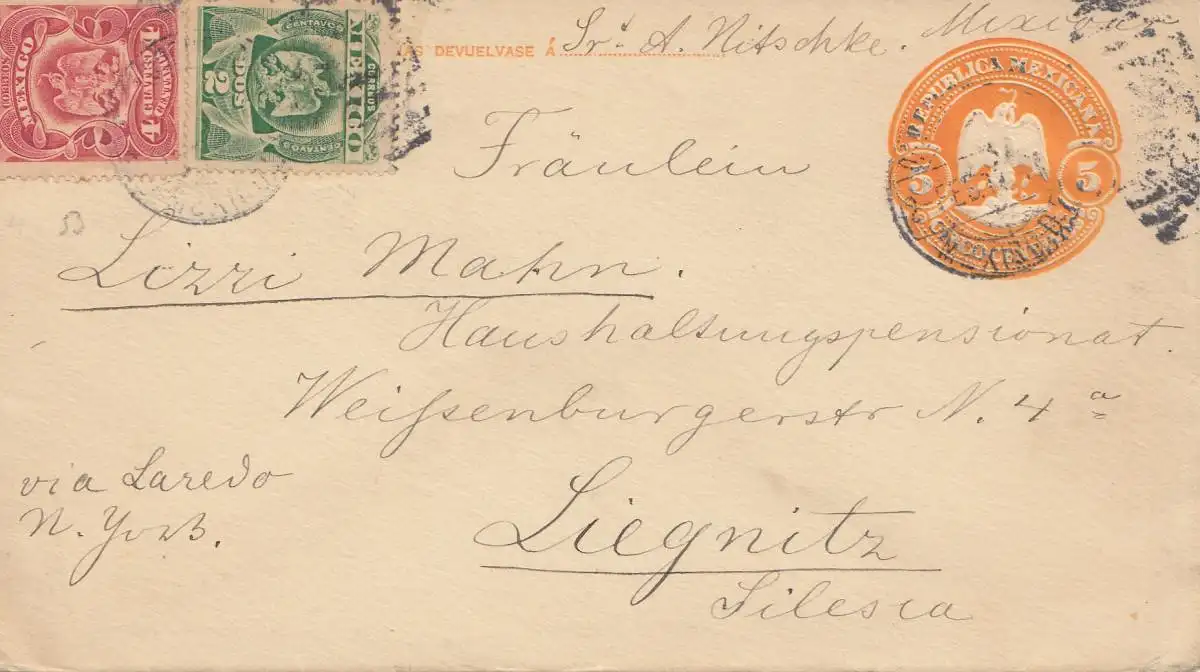 AS DEVUELVASE Á Sr. A. Nitschke. Mexico
CORREOS
MEXICO
4
CUATRO
CENTAVOS
4
CENTAVOS
2 DOS
CENTAVOS
CORREOS
MEXICO
REPUBLICA MEXICANA
5
5
CINCO CENTAVOS
Fräulein
Lizzi Mahn.
Haushaltungspensionat.
Weißenburgerstr N. 4 a
via Laredo
N. York.
Liegnitz
Silesia